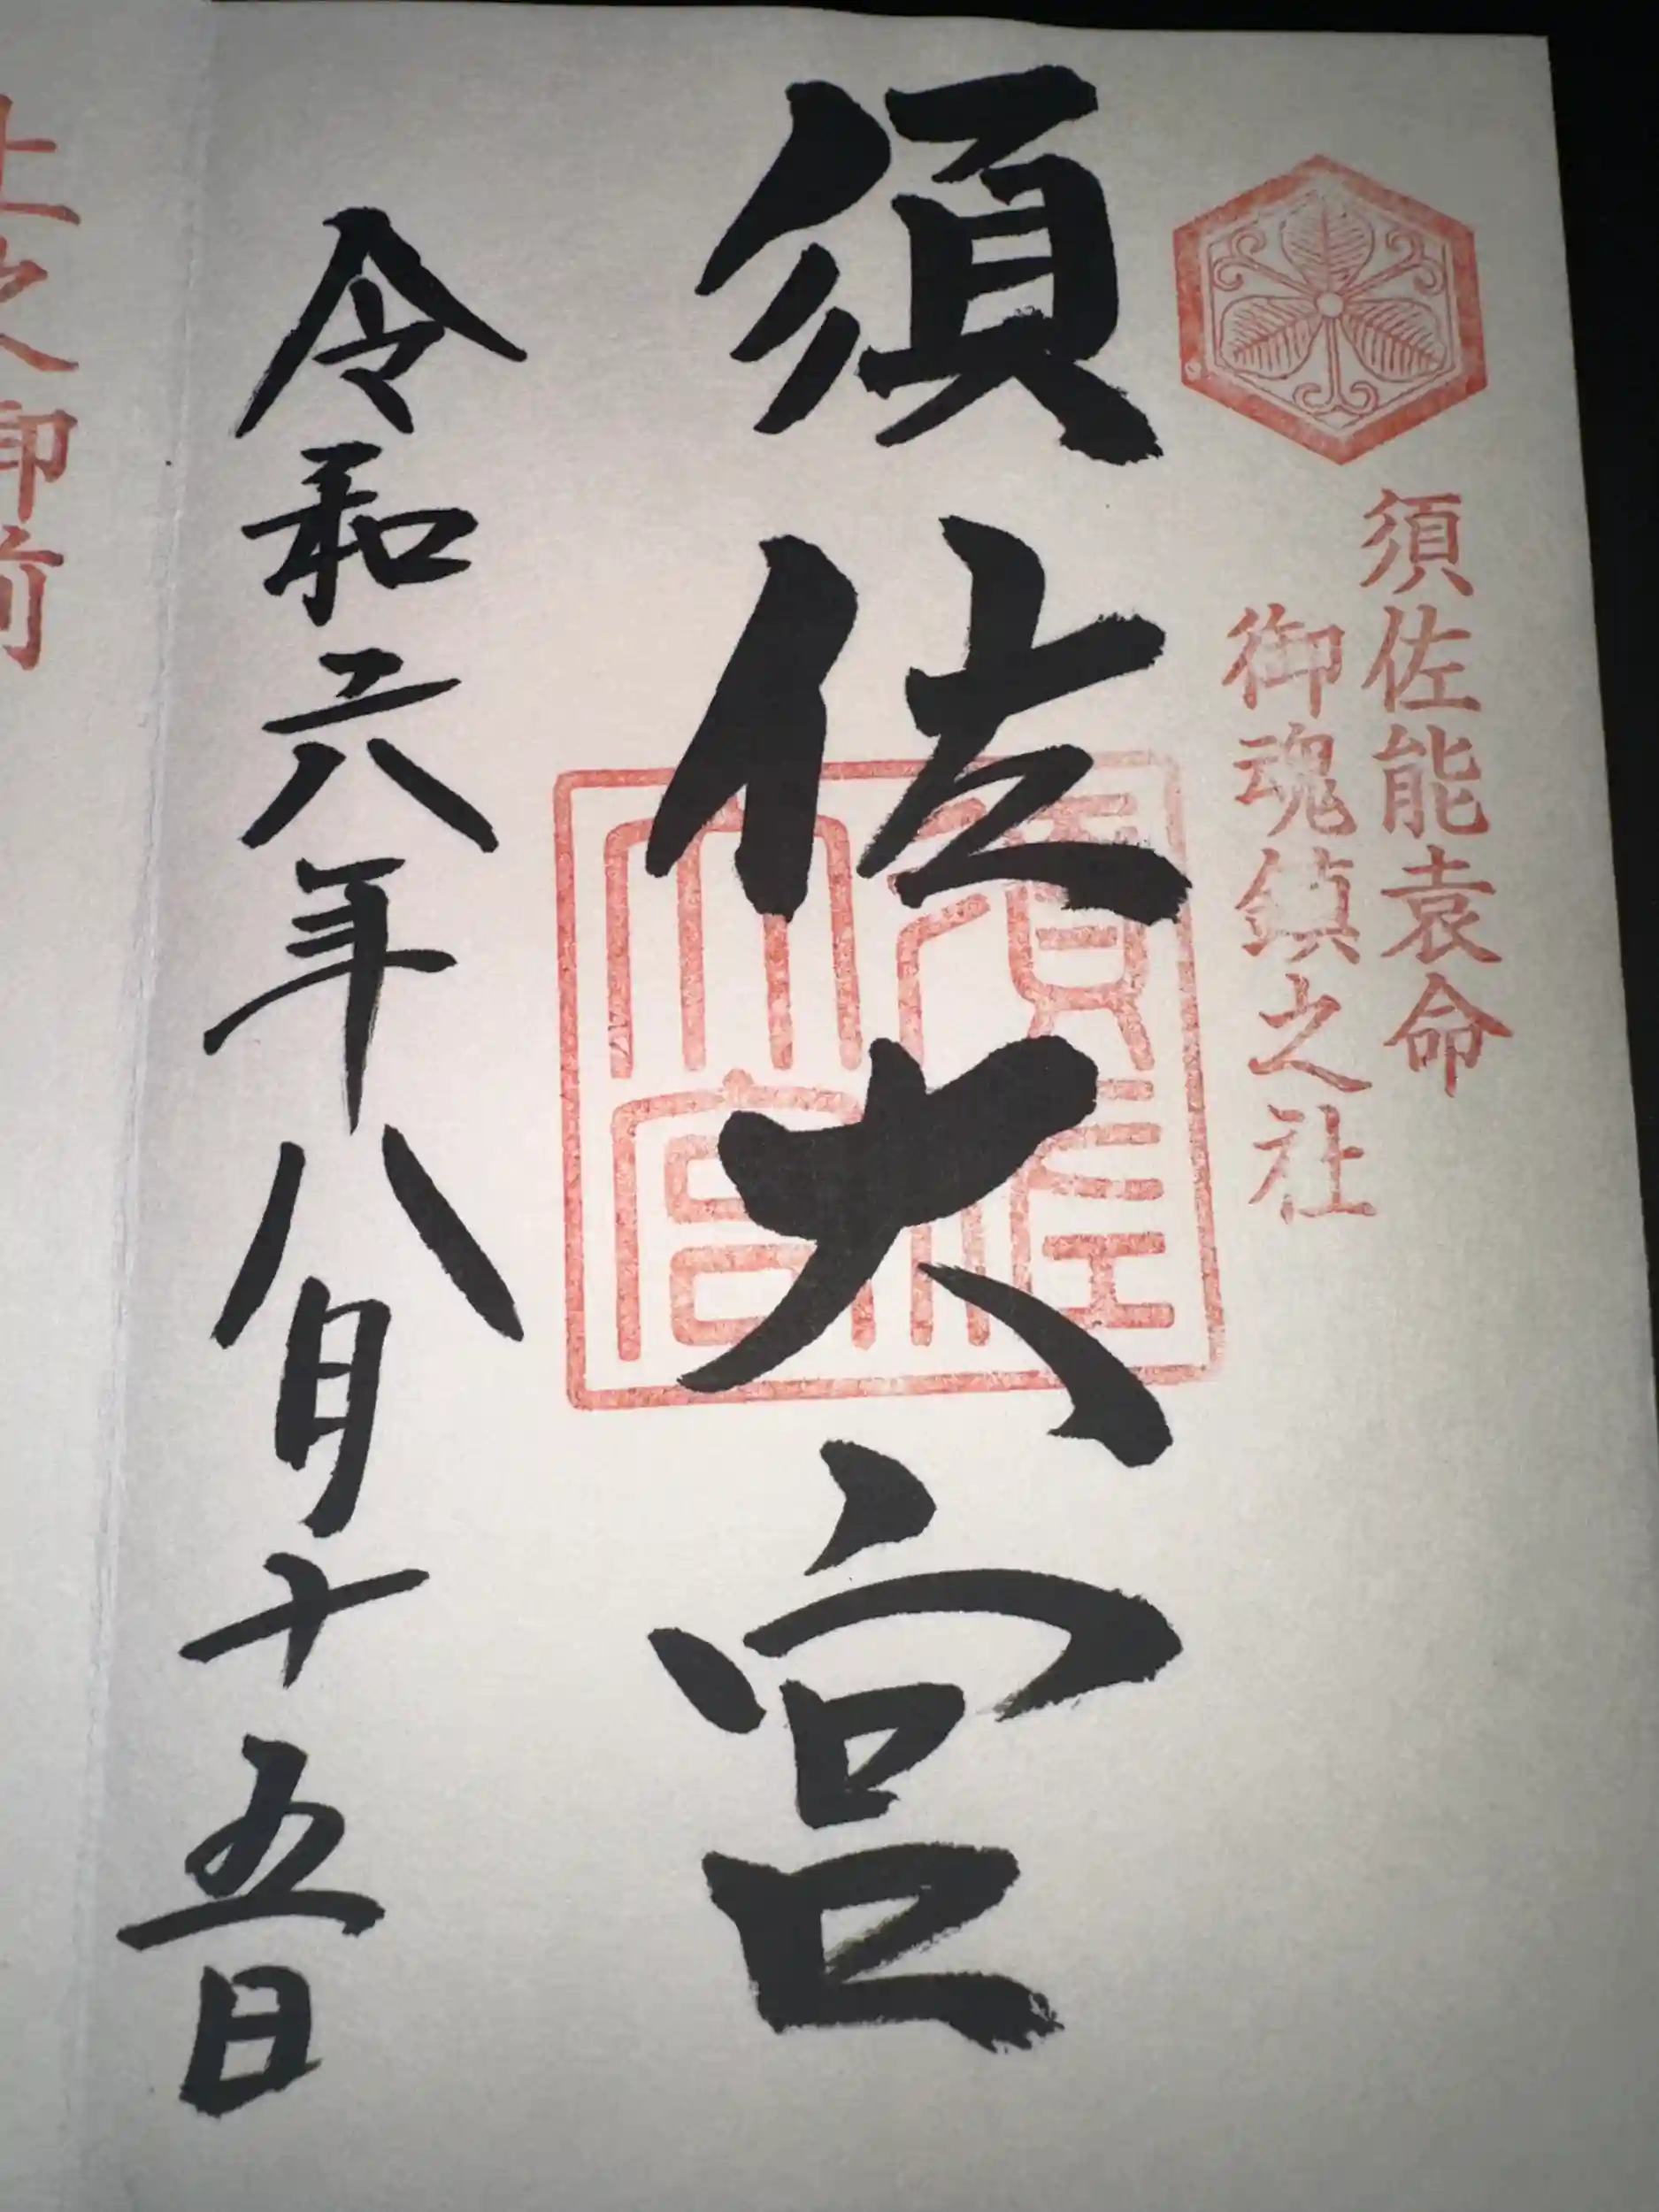 須佐能袁命
御魂鎮之社
須佐大宮
須佐
大宮
令和六年八月十五日
社之御前